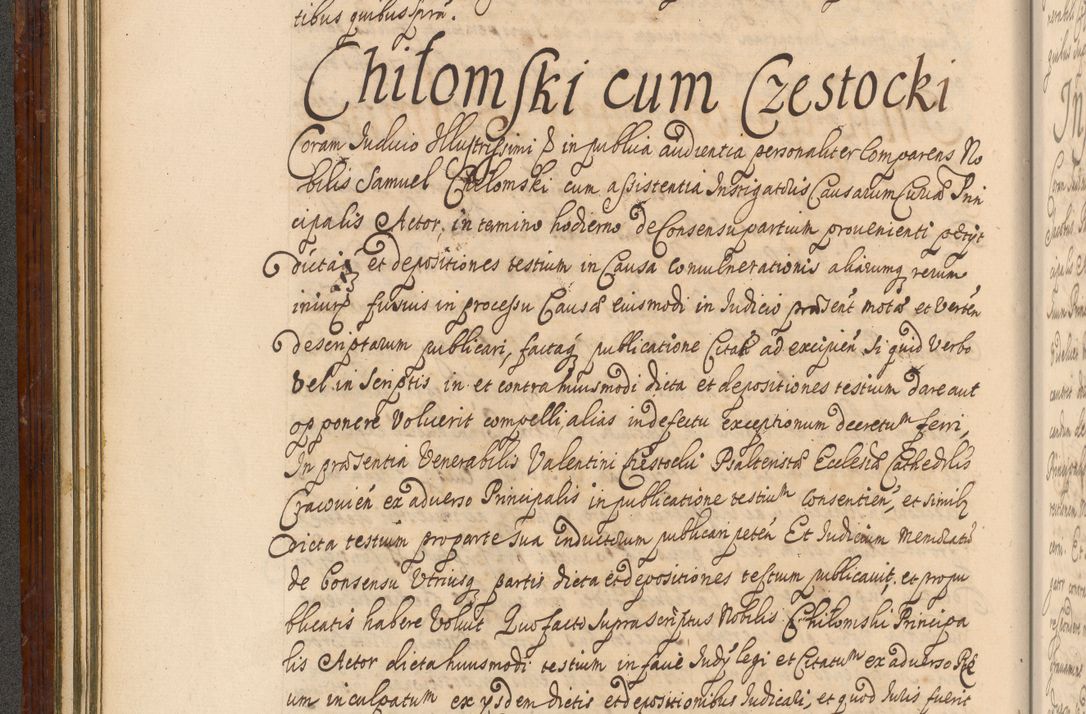 tibus quibus supra.
Chiłomski cum Częstocki
Coram Iudicio Illustrissimi & in publica audientia personaliter Comparens No
bilis Samuel Chiłomski cum assistentia Instigatoris Causarum Curiæ Prin
cipalis Actor, in termino hodierno de Consensu partium provenienti petijt
dicta et depositiones testium in Causa convulnerationis aliarumq rerum
iniur fusius in processu Causæ eiusmodi in Iudicio præsen̄ motæ et Verten̄
descriptarum publicari, factaq publicatione Citatū ad excipien̄ si quid Verbo
vel in Scriptis in et contra huiusmodi dicta et depositiones testium dare aut
opponere Voluerit compelli, alias in defectu Exceptionum decretum ferri,
In præsentia Venerabilis Valentini Cżestocki Psalteristæ Ecclesiæ Cathedrlis
Cracovien̄ ex adverso Principalis in publicatione testium consentien̄, et similr
dicta testium pro parte sua inductorum publicari peten̄ Et Iudicium Memoratū
de Consensu Utriusq partis dicta et depositiones testium publicavit, et pro pu
blicatis habere Voluit Quo facto suprascriptus Nobilis Chiłomski Principa
lis Actor dicta huiusmodi testium in favē Iudij legi et Citatum ex adverso Re
um inculpatum ex ysdem dictis et depositionibus Iudicari, et quod Iuris fuerit